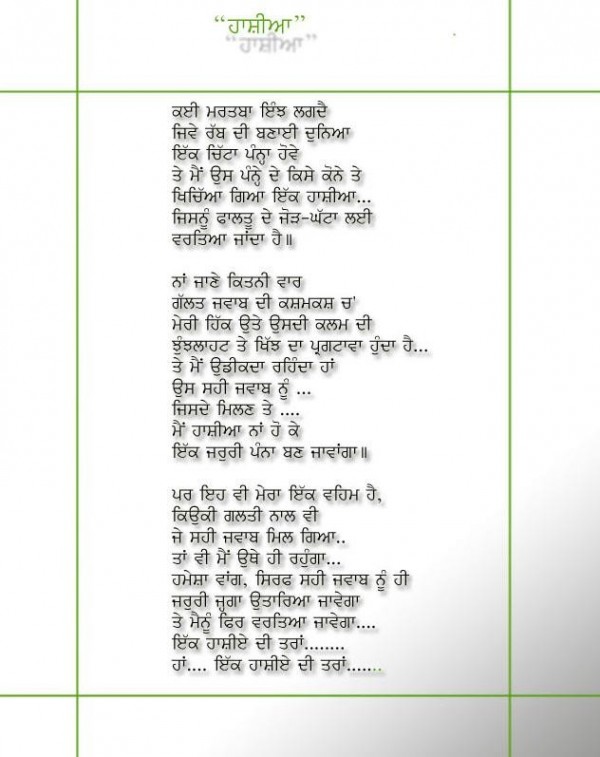 “ਹਾਸ਼ੀਆ”
ਕਈ ਮਰਤਬਾ ਇੰਝ ਲਗਦੈ
ਜਿਵੇ ਰੱਬ ਦੀ ਬਣਾਈ ਦੁਨਿਆ
ਇੱਕ ਚਿੱਟਾ ਪੰਨ੍ਹਾ ਹੋਵੇ
ਤੇ ਮੈਂ ਉਸ ਪੰਨ੍ਹੇ ਦੇ ਕਿਸੇ ਕੋਨੇ ਤੇ
ਖਿਚਿੱਆ ਗਿਆ ਇੱਕ ਹਾਸ਼ੀਆ...
ਜਿਸਨੂੰ ਫਾਲਤੂ ਦੇ ਜੋੜ-ਘੱਟਾ ਲਈ
ਵਰਤਿਆ ਜਾਂਦਾ ਹੈ॥
ਨਾਂ ਜਾਣੇ ਕਿਤਨੀ ਵਾਰ
ਗੱਲਤ ਜਵਾਬ ਦੀ ਕਸ਼ਮਕਸ਼ ਚ'
ਮੇਰੀ ਹਿੱਕ ਉਤੇ ਉਸਦੀ ਕਲਮ ਦੀ
ਝੁੰਝਲਾਹਟ ਤੇ ਖਿੱਝ ਦਾ ਪ੍ਰਗਟਾਵਾ ਹੁੰਦਾ ਹੈ...
ਤੇ ਮੈਂ ਉਡੀਕਦਾ ਰਹਿੰਦਾ ਹਾਂ
ਉਸ ਸਹੀ ਜਵਾਬ ਨੂੰ ...
ਜਿਸਦੇ ਮਿਲਣ ਤੇ ....
ਮੈਂ ਹਾਸ਼ੀਆ ਨਾਂ ਹੋ ਕੇ
ਇੱਕ ਜਰੁਰੀ ਪੰਨਾ ਬਣ ਜਾਵਾਂਗਾ॥
ਪਰ ਇਹ ਵੀ ਮੇਰਾ ਇੱਕ ਵਹਿਮ ਹੈ,
ਕਿਉਕੀ ਗਲਤੀ ਨਾਲ ਵੀ
ਜੇ ਸਹੀ ਜਵਾਬ ਮਿਲ ਗਿਆ..
ਤਾਂ ਵੀ ਮੈਂ ਉਥੇ ਹੀ ਰਹੁੰਗਾ...
ਹਮੇਸ਼ਾ ਵਾਂਗ, ਸਿਰਫ ਸਹੀ ਜਵਾਬ ਨੂੰ ਹੀ
ਜਰੁਰੀ ਜ੍ਹਗਾ ਉਤਾਰਿਆ ਜਾਵੇਗਾ
ਤੇ ਮੈਨੂੰ ਫਿਰ ਵਰਤਿਆ ਜਾਵੇਗਾ....
ਇੱਕ ਹਾਸ਼ੀਏ ਦੀ ਤਰਾਂ........
ਹਾਂ.... ਇੱਕ ਹਾਸ਼ੀਏ ਦੀ ਤਰਾਂ.......